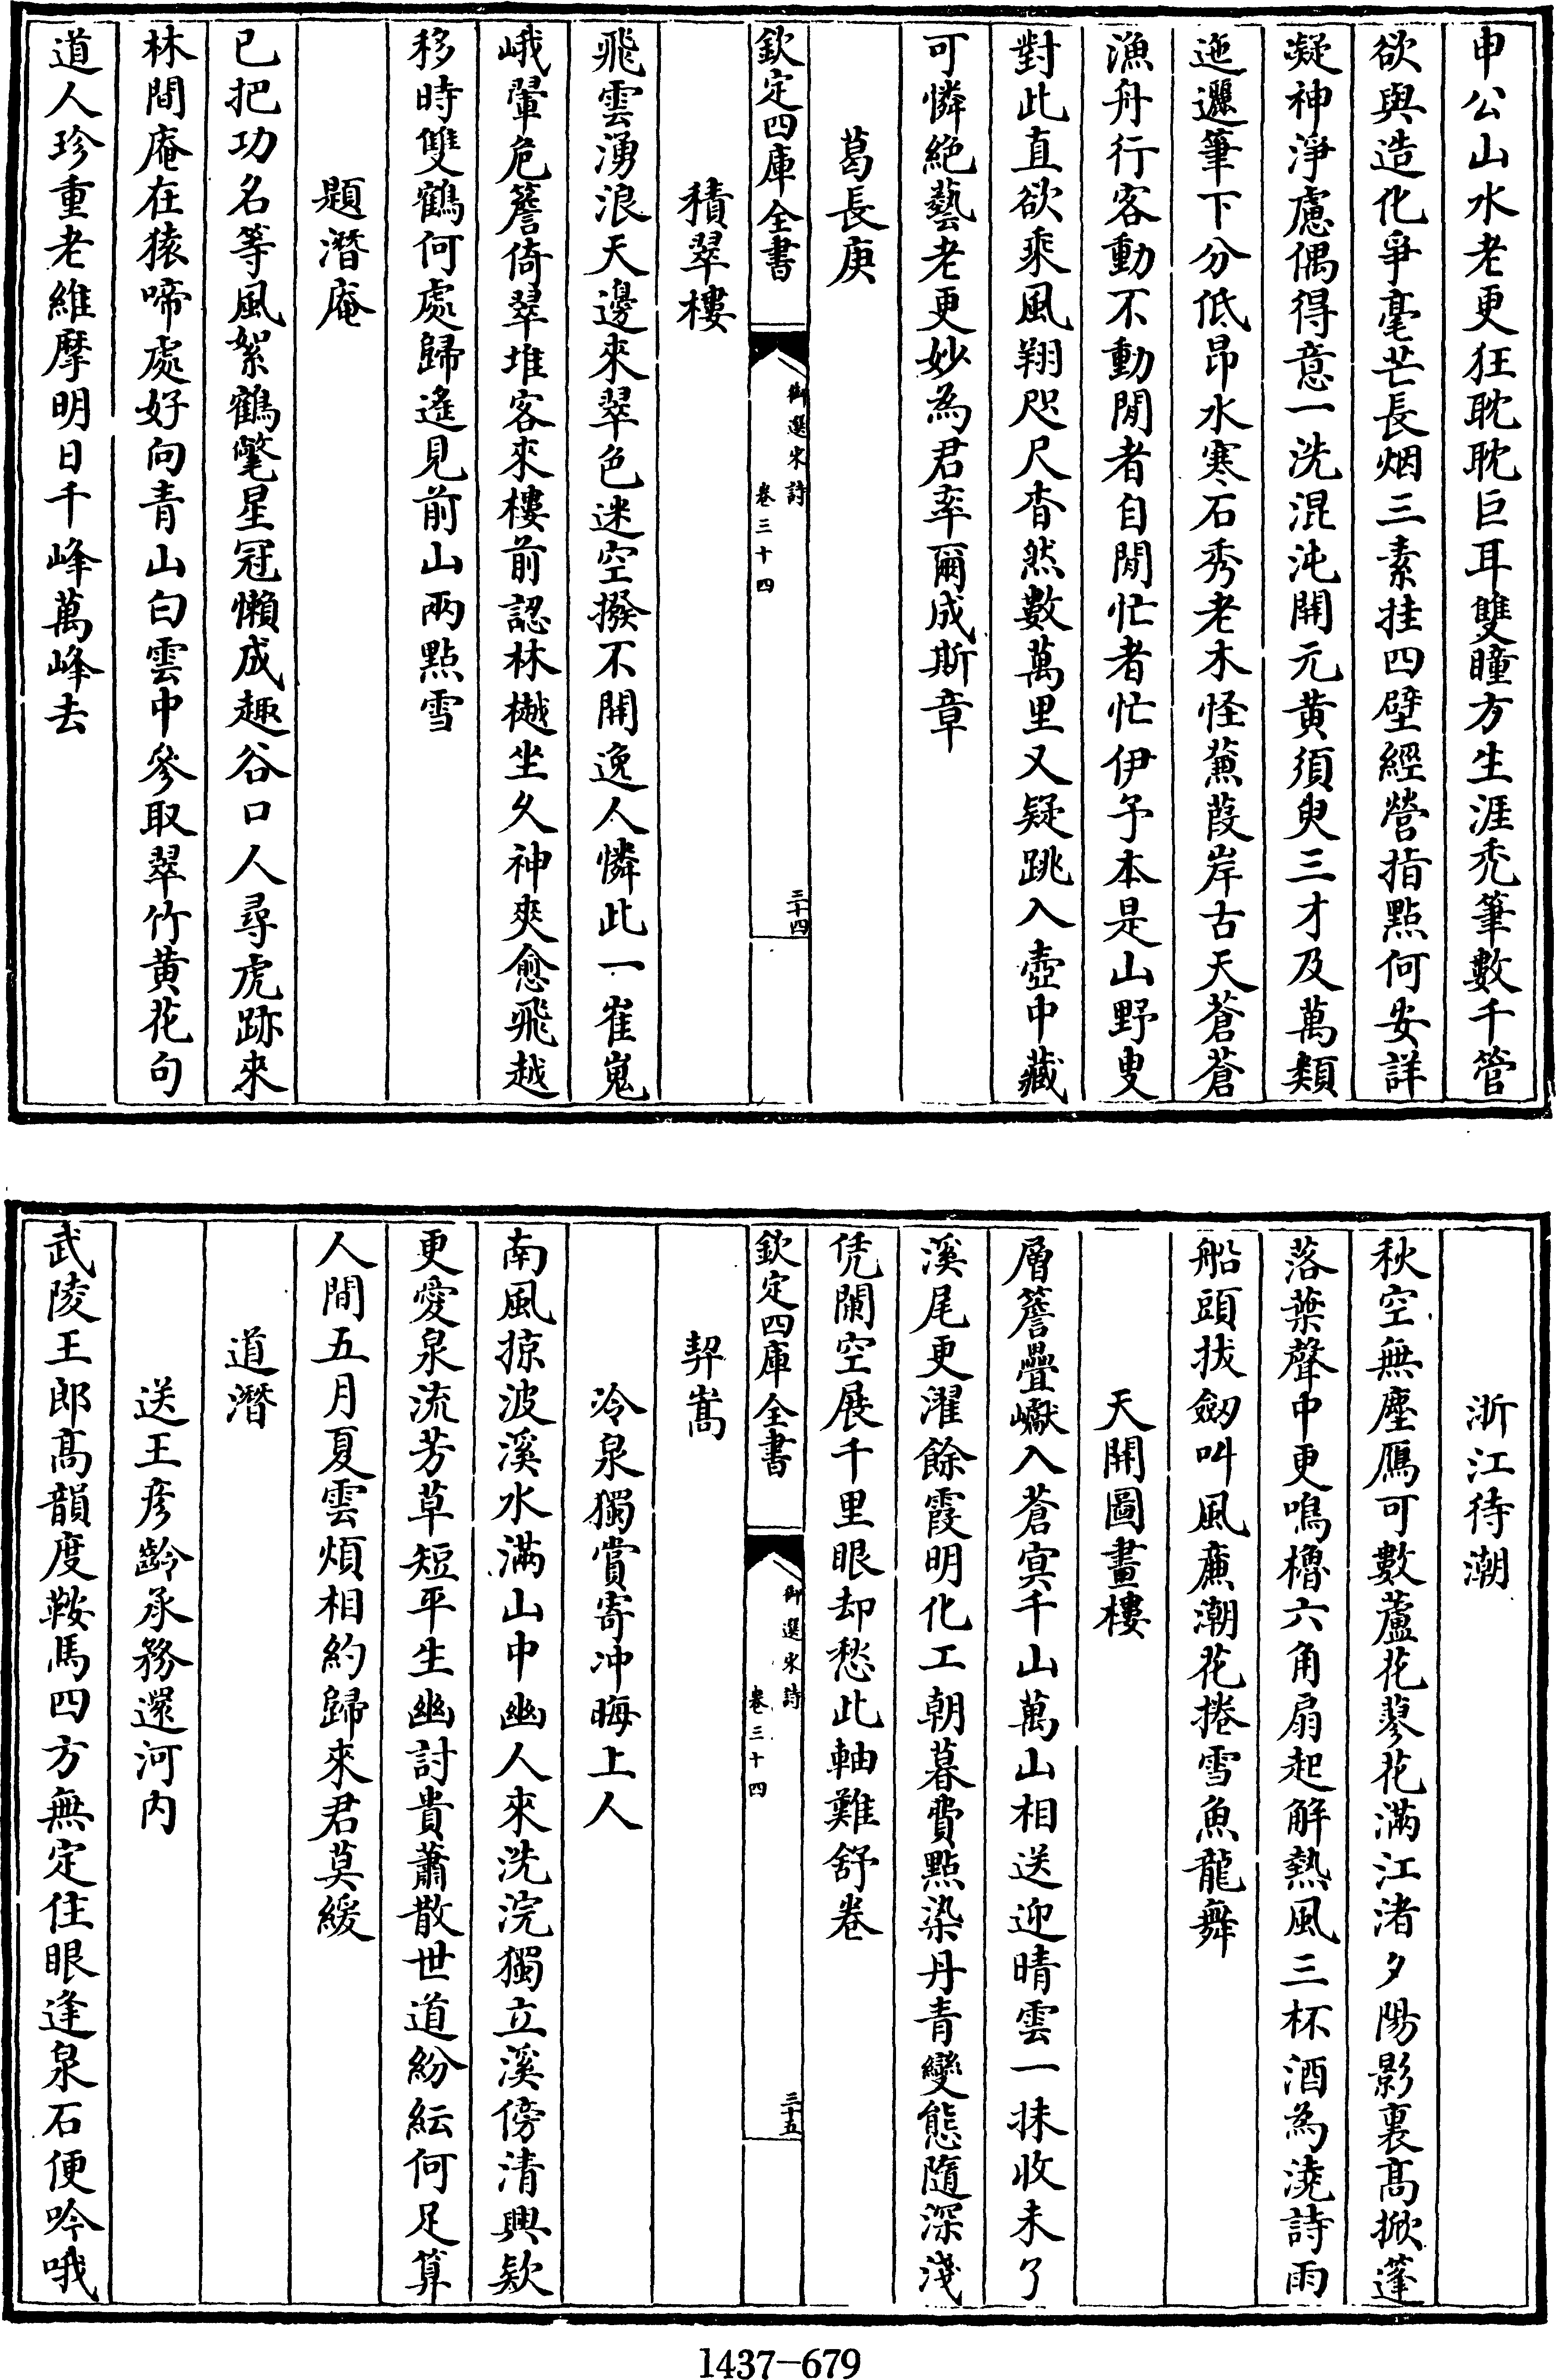 申公山水老更狂耽耽巨耳雙瞳方生涯禿筆數千管
欲與造化爭毫芒長烟三素挂四壁經營指點何安詳
凝神淨慮偶得意一洗混沌開元黄須臾三才及萬類
迤邐筆下分低昂水寒石秀老木怪蒹葭岸古天蒼蒼
漁舟行客動不動閒者自閒忙者忙伊予本是山野叟
對此直欲乘風翔咫尺杳然數萬里又疑跳入壺中藏
可憐絶藝老更妙為君率爾成斯章
葛長庚
欽定四庫全書
御選宋詩
卷三十四
三十四
積翠樓
飛雲湧浪天邊來翠色迷空撥不開逸人憐此一崔嵬
峨翬危簷倚翠堆客來樓前認林樾坐久神爽愈飛越
移時雙鶴何處歸遙見前山兩點雪
題潛庵
已把功名等風絮鶴氅星冠懶成趣谷口人尋虎跡來
林間庵在猿啼處好向青山白雲中參取翠竹黄花句
道人珍重老維摩明日千峰萬峰去
浙江待潮
秋空無塵鴈可數蘆花蓼花滿江渚夕陽影裏髙掀蓬
落葉聲中更鳴櫓六角扇起解熱風三杯酒為澆詩雨
船頭拔劔叫風廉潮花捲雪魚龍舞
天開圖畫樓
層簷疊巘入蒼冥千山萬山相送迎晴雲一抹收未了
溪尾更濯餘霞明化工朝暮費點染丹青變態隨深淺
凭闌空展千里眼却愁此軸難舒卷
欽定四庫全書
御選宋詩
卷三十四
三十五
契嵩
冷泉獨賞寄冲晦上人
南風掠波溪水滿山中幽人來洗浣獨立溪傍清興欵
更愛泉流芳草短平生幽討貴蕭散世道紛紜何足算
人間五月夏雲煩相約歸來君莫緩
道潛
送王彦齡承務還河内
武陵王郎髙韻度鞍馬四方無定住眼逢泉石便吟哦
1437-679